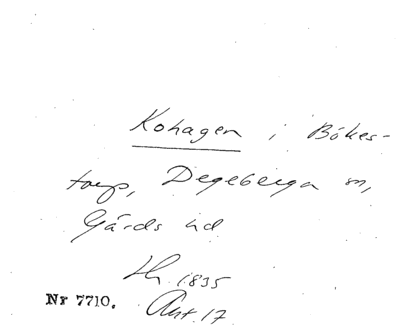 Kohagen i Bökes-
torp, Degeberga sn,
Gärds hd
Lh. 1835
Nr 7710. Akt. 17